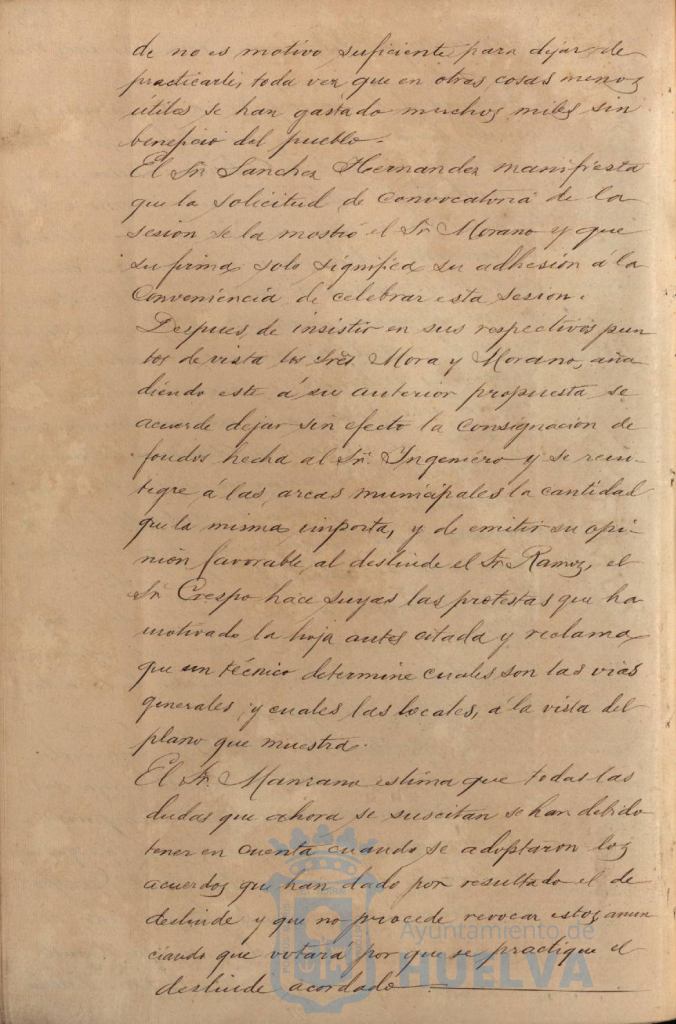 de no es motivo suficiente para dejar de
practicarle, toda vez que en otras cosas menos
utiles se han gastado muchos miles sin
beneficio del pueblo.
El Sr. Sanchez Hernandez manifiesta
que la solicitud de convocatoria de la
sesion se la mostró el Sr. Morano y que
su firma solo significa su adhesión á la
conveniencia de celebrar esta sesion.
Despues de insistir en sus respectivos pun
tos de vista los Sres. Mora y Morano, aña
diendo este á su anterior propuesta se
acuerde dejar sin efecto la consignacion de
fondos hecha al Sr. Ingeniero y se rein-
tegre á las arcas municipales la cantidad
que la misma importa, y de emitir su opi-
nión favorable al deslinde el Sr. Ramos, el
Sr. Crespo hace suyas las protestas que ha
motivado la hoja antes citada y reclama
que un técnico determine cuales son las vias
generales y cuales las locales, á la vista del
plano que muestra.
El Sr. Manzano estima que todas las
dudas que ahora se suscitan se han debido
tener en cuenta cuando se adoptaron los
acuerdos que han dado por resultado el de
deslinde y que no procede revocar estos anun
ciando que votará por que se practique el
deslinde acordado
Ayuntamiento de
HUELVA